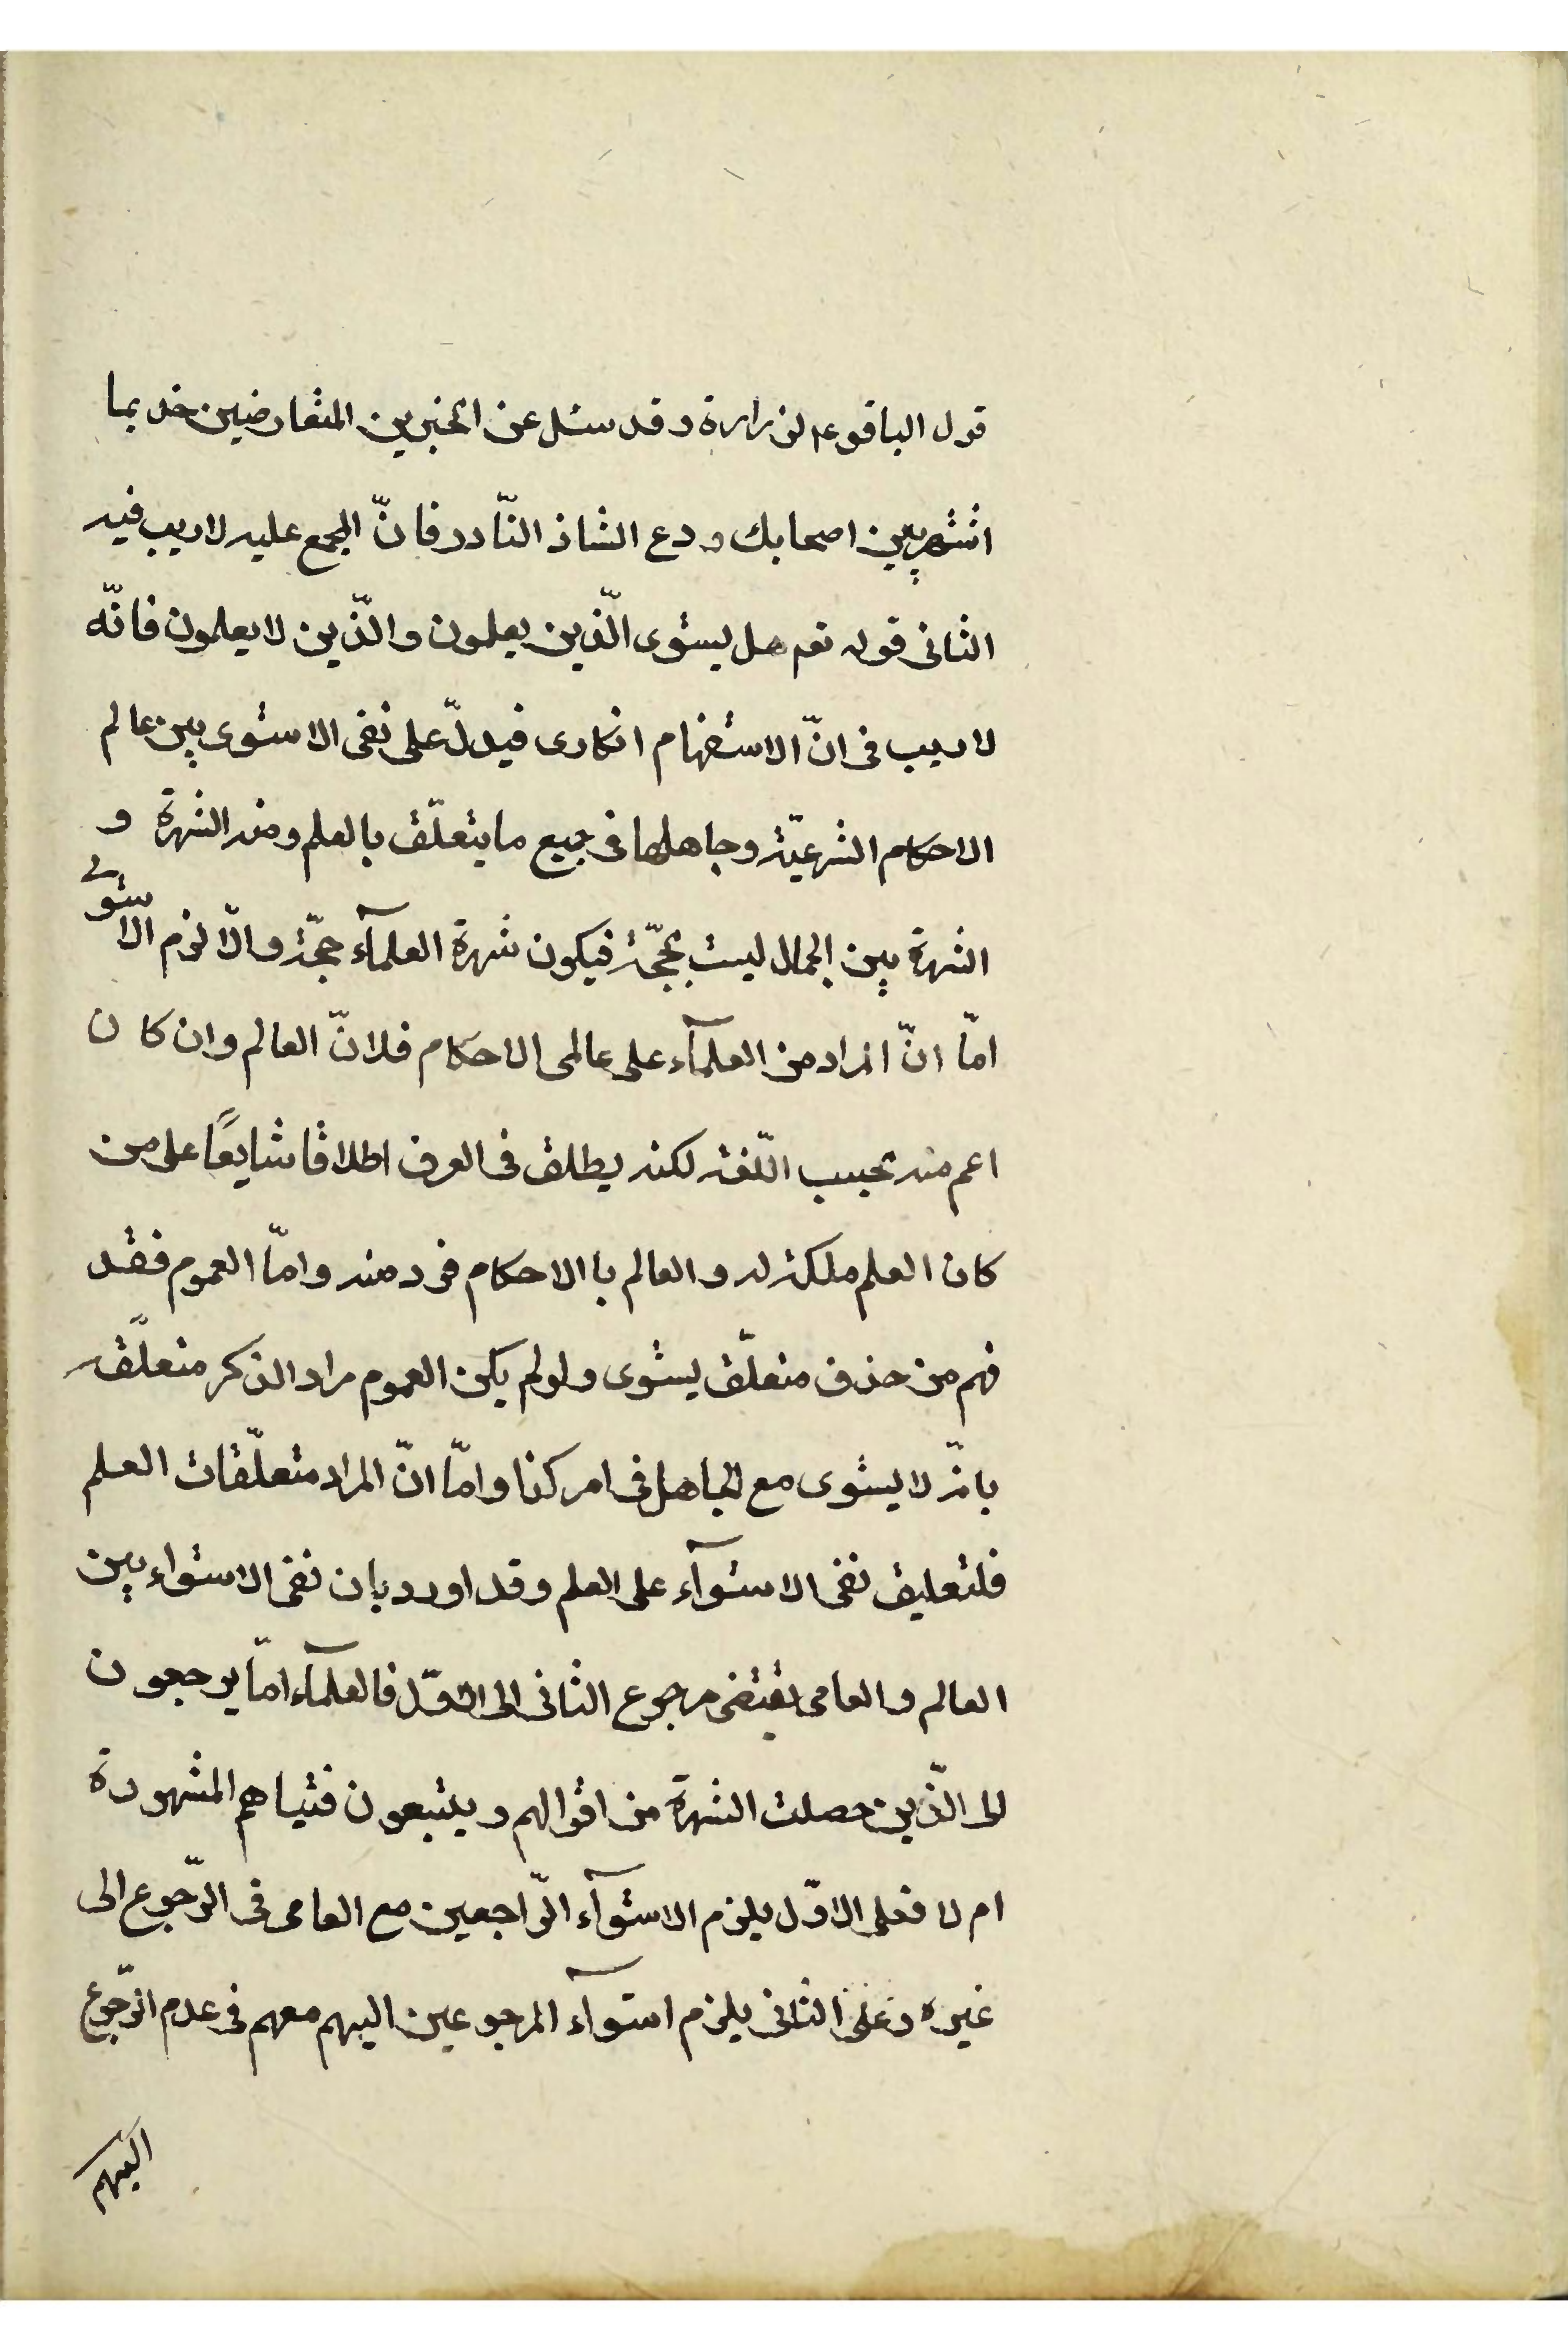 قول الباقر ع لزرارة وقد سئل عن الخبرين المتعارضين خذ بما
اشتهر بين اصحابك ودع الشاذ النّادر فانّ المجمع عليه لا ريب فيه
الثانى قوله تعم هل يستوى الّذين يعلمون والّذين لا يعلمون فانّه
لا ريب فى انّ الاستفهام انكارى فيدلّ على نفى الاستوى بين عالم
الاحكام الشرعيّة وجاهلها فى جميع ما يتعلّق بالعلم ومنه الشهرة و
الشهرة بين الجهال ليست بحجّة فيكون شهرة العلمآء حجّة والّا لزم الاستوى
امّا انّ المراد من العلمآء على عالمى الاحكام فلانّ العالم وان كان
اعم منه بحسب اللّغة لكنه يطلق فى العرف اطلاقا شايعًا على من
كان العلم ملكة له والعالم با الاحكام فرد منه وامّا العموم فقد
فهم من حذف متعلّق يستوى ولو لم يكن العموم مراد الذكر متعلّقه
بانّه لا يستوى مع الجاهل فى امر كذا وامّا انّ المراد متعلّقات العلم
فلتعليق نفى الاستوآء على العلم وقد اورد بان نفى الاستواء بين
العالم والعامى يقتضى رجوع الثانى الى الاوّل فالعلمآء امّا يرجعون
الى الّذين حصلت الشهرة من اقوالهم ويتبعون فتياهم المشهورة
ام لا فعلى الاوّل يلزم الاستوآء الرّاجعين مع العامى فى الرّجوع الى
غيره وعلى الثانى يلزم استوآء المرجوعين اليهم معهم فى عدم الرّجوع
اليهم